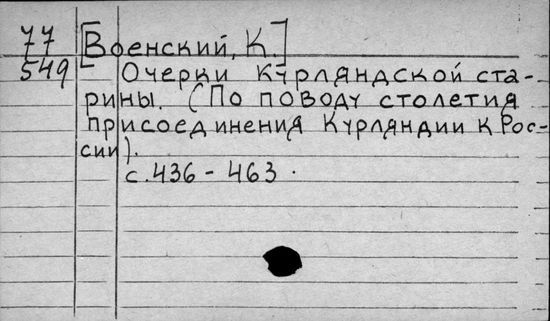 77 [Военский, К.]
549 Очерки Курляндской ста-
рины. (По поводу столетия
присоединения Курляндии к Рос-
сии).
с. 436 - 463.